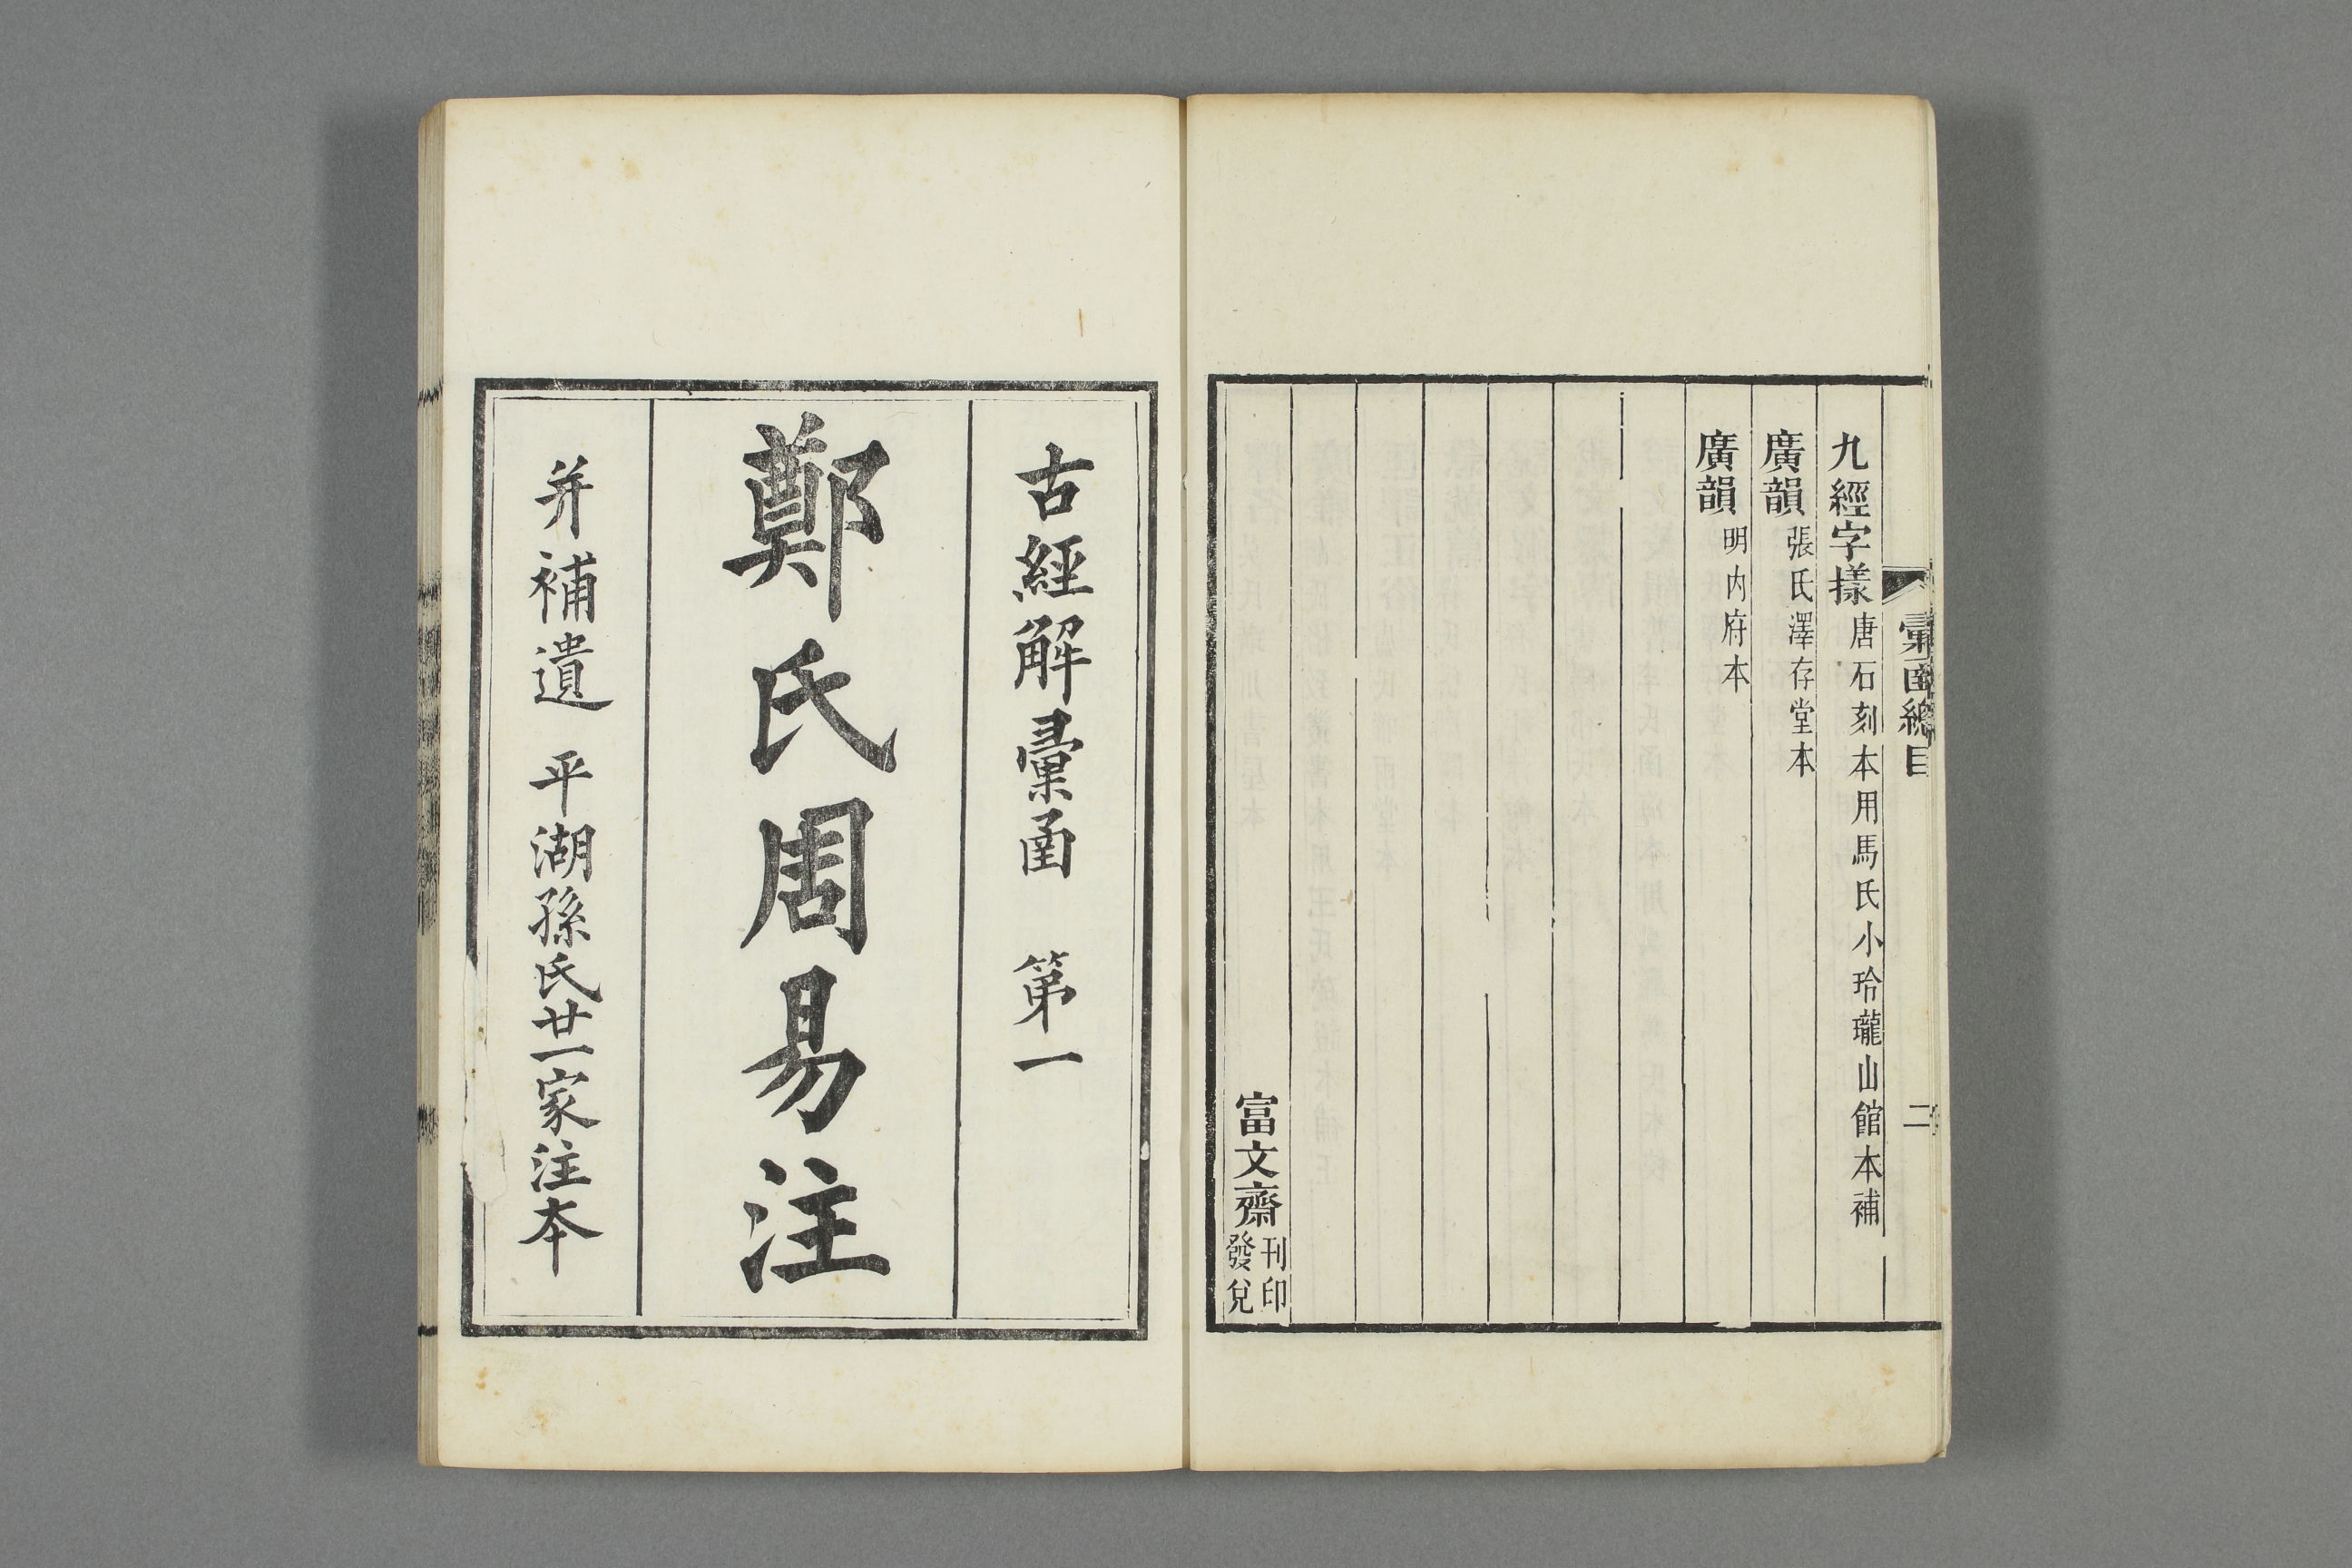 彙函總目
二
九經字㨾唐石刻本用馬氏小玲瓏山館本補
廣韻張氏澤存堂本
廣韻明内府本
富文齋刊印發兌
古經解彙函 第一
鄭氏周易注
并補遺 平湖孫氏廿一家注本